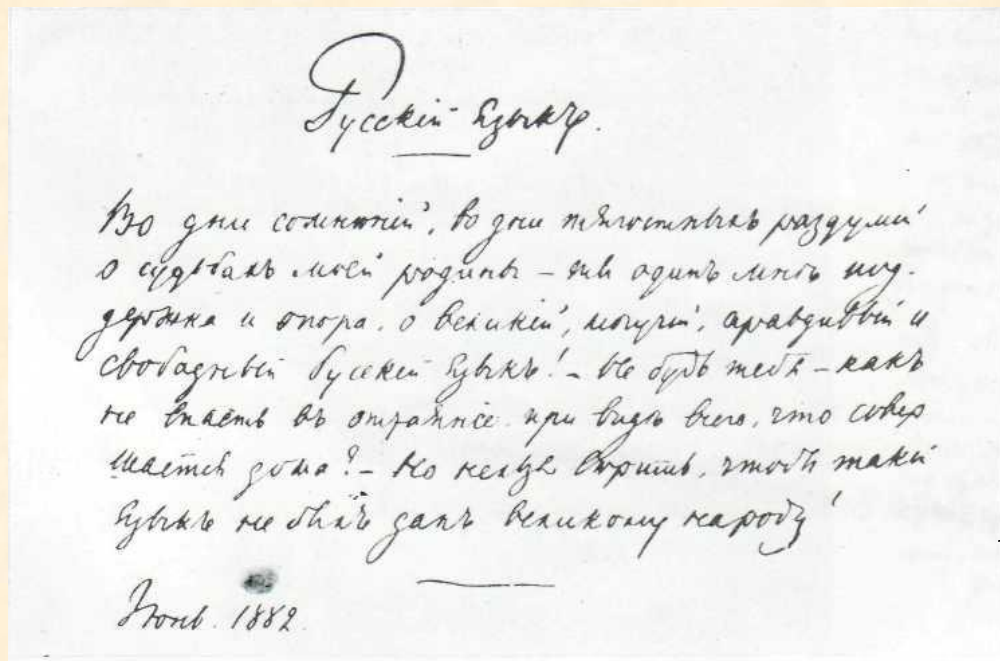 Русскій Языкъ.
Во дни сомнѣній, во дни тягостныхъ раздумій
о судьбахъ моей родины – ты одинъ мнѣ под-
держка и опора, о великій, могучій, правдивый и
свободный Русскій Языкъ! – Не будь тебя – какъ
не впасть въ отчаяніе при видѣ всего, что совер
шается дома? – Но нельзя вѣрить, чтобъ такой
Языкъ не былъ данъ великому народу!
Іюнь. 1882.